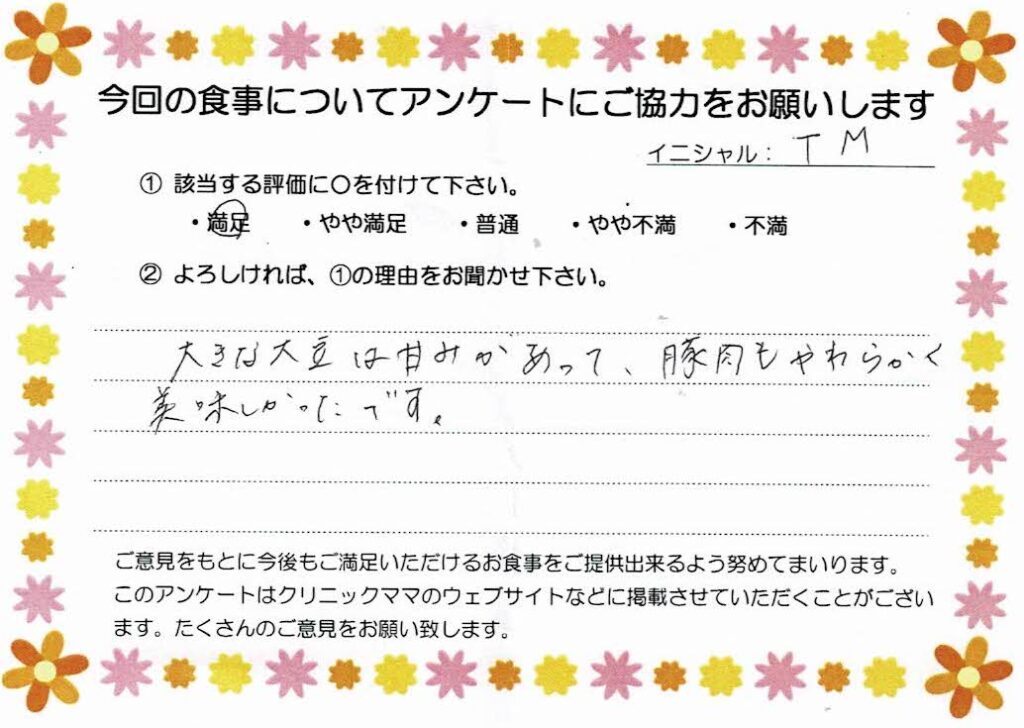 今回の食事についてアンケートにご協力をお願いします
イニシャル： T M
① 該当する評価に〇を付けて下さい。
・満足 ・やや満足 ・普通 ・やや不満 ・不満
② よろしければ、①の理由をお聞かせ下さい。
大きな大豆は甘みがあって、豚肉もやわらかく
美味しかったです。
ご意見をもとに今後もご満足いただけるお食事をご提供出来るよう努めてまいります。
このアンケートはクリニックママのウェブサイトなどに掲載させていただくことがござい
ます。たくさんのご意見をお願い致します。